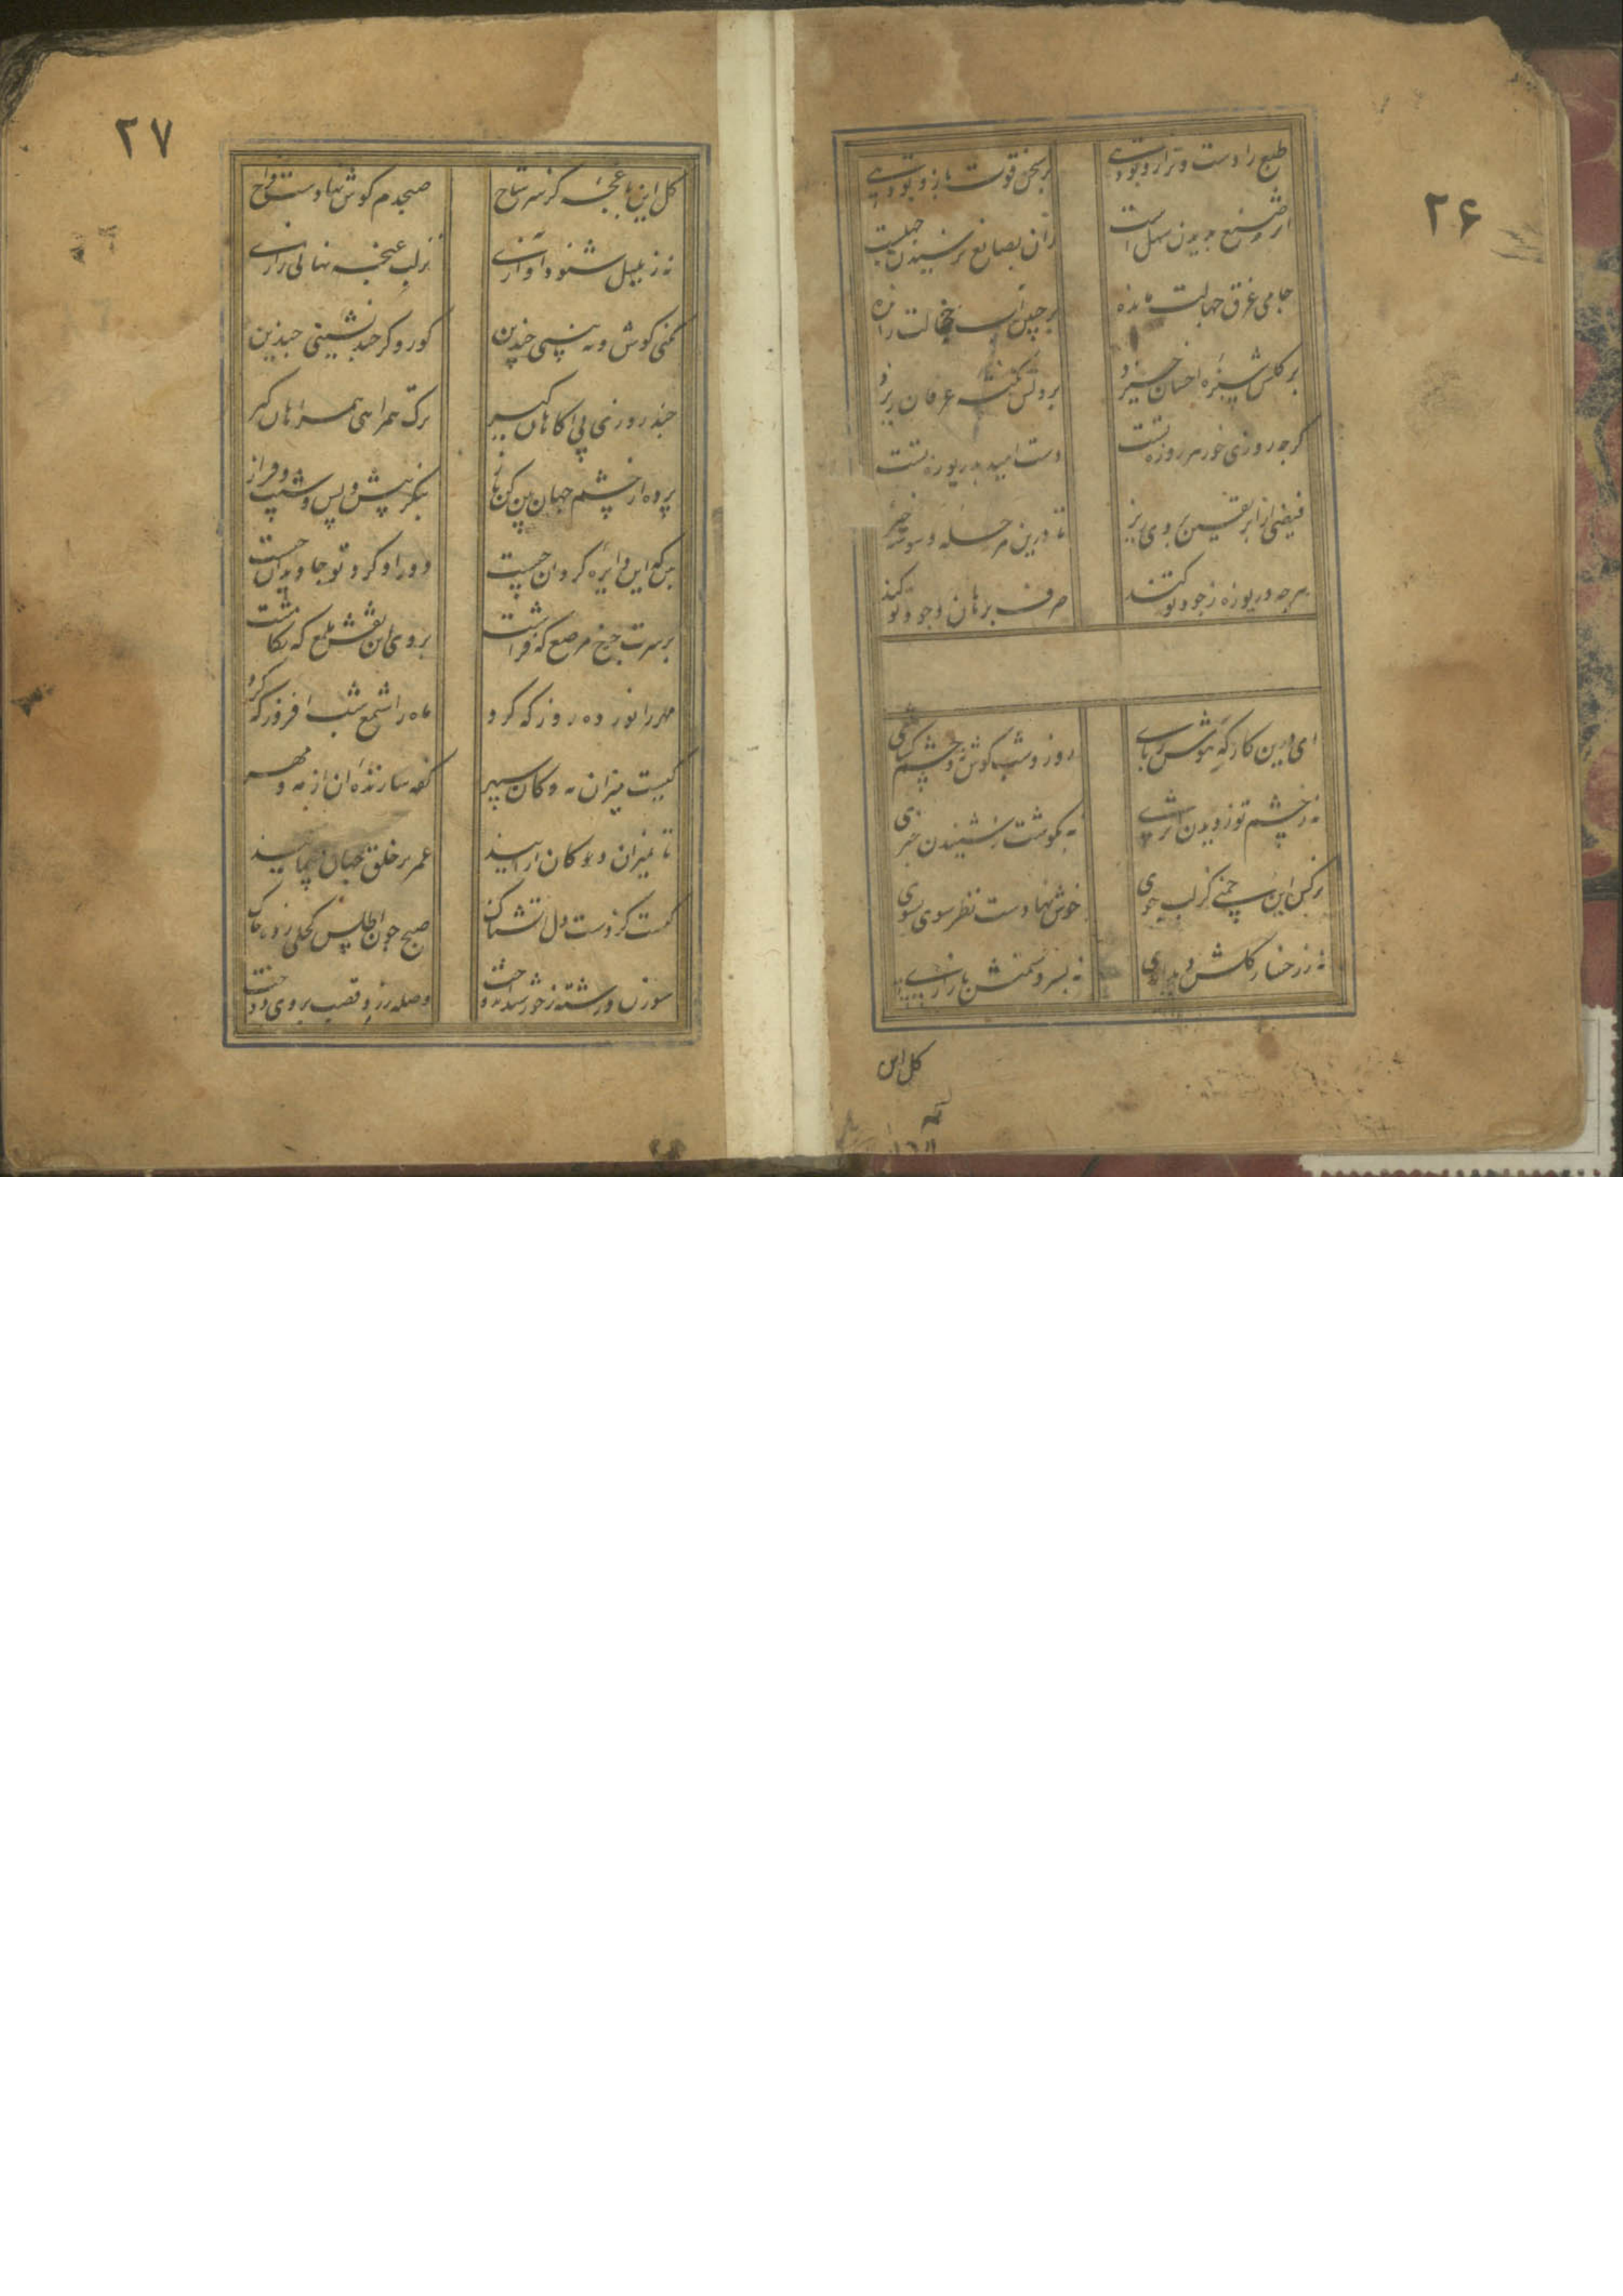 ۲۶
طبع را دست و ترازو تو دهی بر سخن قوت بازو تو دهی
اثر صنع بدیدن سهل است زان بصانع نرسیدن جهل است
جامی غرق جهالت مانده بر جبین آب خجالت رانده
بر گلش سبزه احسان خیزد بر دلش نکته عرفان ریزد
گرچه روزی خور هر روزه تست دست امید بدریوزه تست
فیضی از ابر یقین بروی ریز تا درین مرحله وسوسه خیز
هرچه دریوزه ز جود تو کند صرف برهان وجود تو کند
ای درین کارگه هوش ربای روز و شب گوش و چشم گشای
نه ز چشم تو ز دیدن اثری نه بگوشت ز شنیدن خبری
نرگس این چمنی کز لب جوی خوش نهادست نظر سوی بسوی
نه ز رخسار گلش دیداری نه بسرو و سمنش بازاری
گل این
۲۷
گل این باغچه کز سر شاخ صبحدم گوش نهادست فراخ
نه ز بلبل شنود آوازی نز لب غنچه نهانی رازی
نکنی گوش و نه بینی چندین کور و کر چند نشینی چندین
چند روزی پی آکاهان گیر برگ همراهی همراهان گیر
پرده از چشم جهان بین کن باز بنگر پیش و پس و شیب و فراز
بین که این دایره گردان چیست دور او گرد تو جاویدان چیست
بر سرت چرخ مرصع که فراشت بروی این نقش ملمع که نگاشت
مهر را نور ده روز که کرد ماه را شمع شب افروز که کرد
کیست میزان نه دکان سپهر کفه سازنده آن از مه و مهر
تا بمیزان دو کان آرایند عمر بر خلق جهان پیمایند
کیست کز دست دل آتشناک صبح چون اطلس کحلی زد چاک
سوزن و رشته ز خور وصله زر و قصب بروی دوخت